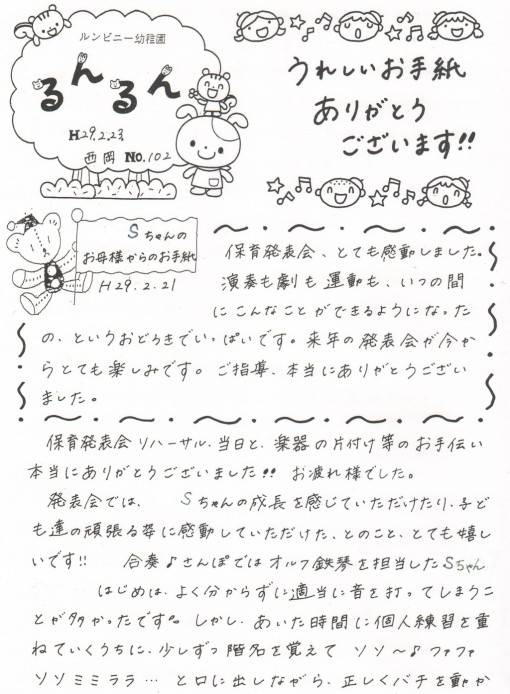 ルンビニー幼稚園
るんるん
H29.2.23
西岡 No.102
うれしいお手紙
ありがとう
ございます!!
Sちゃんの
お母様からのお手紙
H29.2.21
保育発表会、とても感動しました。
演奏も劇も運動も、いつの間
にこんなことができるようになった
の、というおどろきでいっぱいです。来年の発表会が今か
らとても楽しみです。ご指導、本当にありがとうござい
ました。
保育発表会リハーサル、当日と、楽器の片付け等のお手伝い
本当にありがとうございました!! お疲れ様でした。
発表会では、 Sちゃんの成長を感じていただけたり、子ど
も達の頑張る姿に感動していただけた、とのこと、とても嬉し
いです!! 合奏♪さんぽではオルフ鉄琴を担当したSちゃん
はじめは、よく分からずに適当に音を打ってしまうこ
とが多かったです。しかし、あいた時間に個人練習を重
ねていくうちに、少しずつ階名を覚えて ソソ〜♪ファファ
ソソミミララ… と口に出しながら、正しくバチを動か